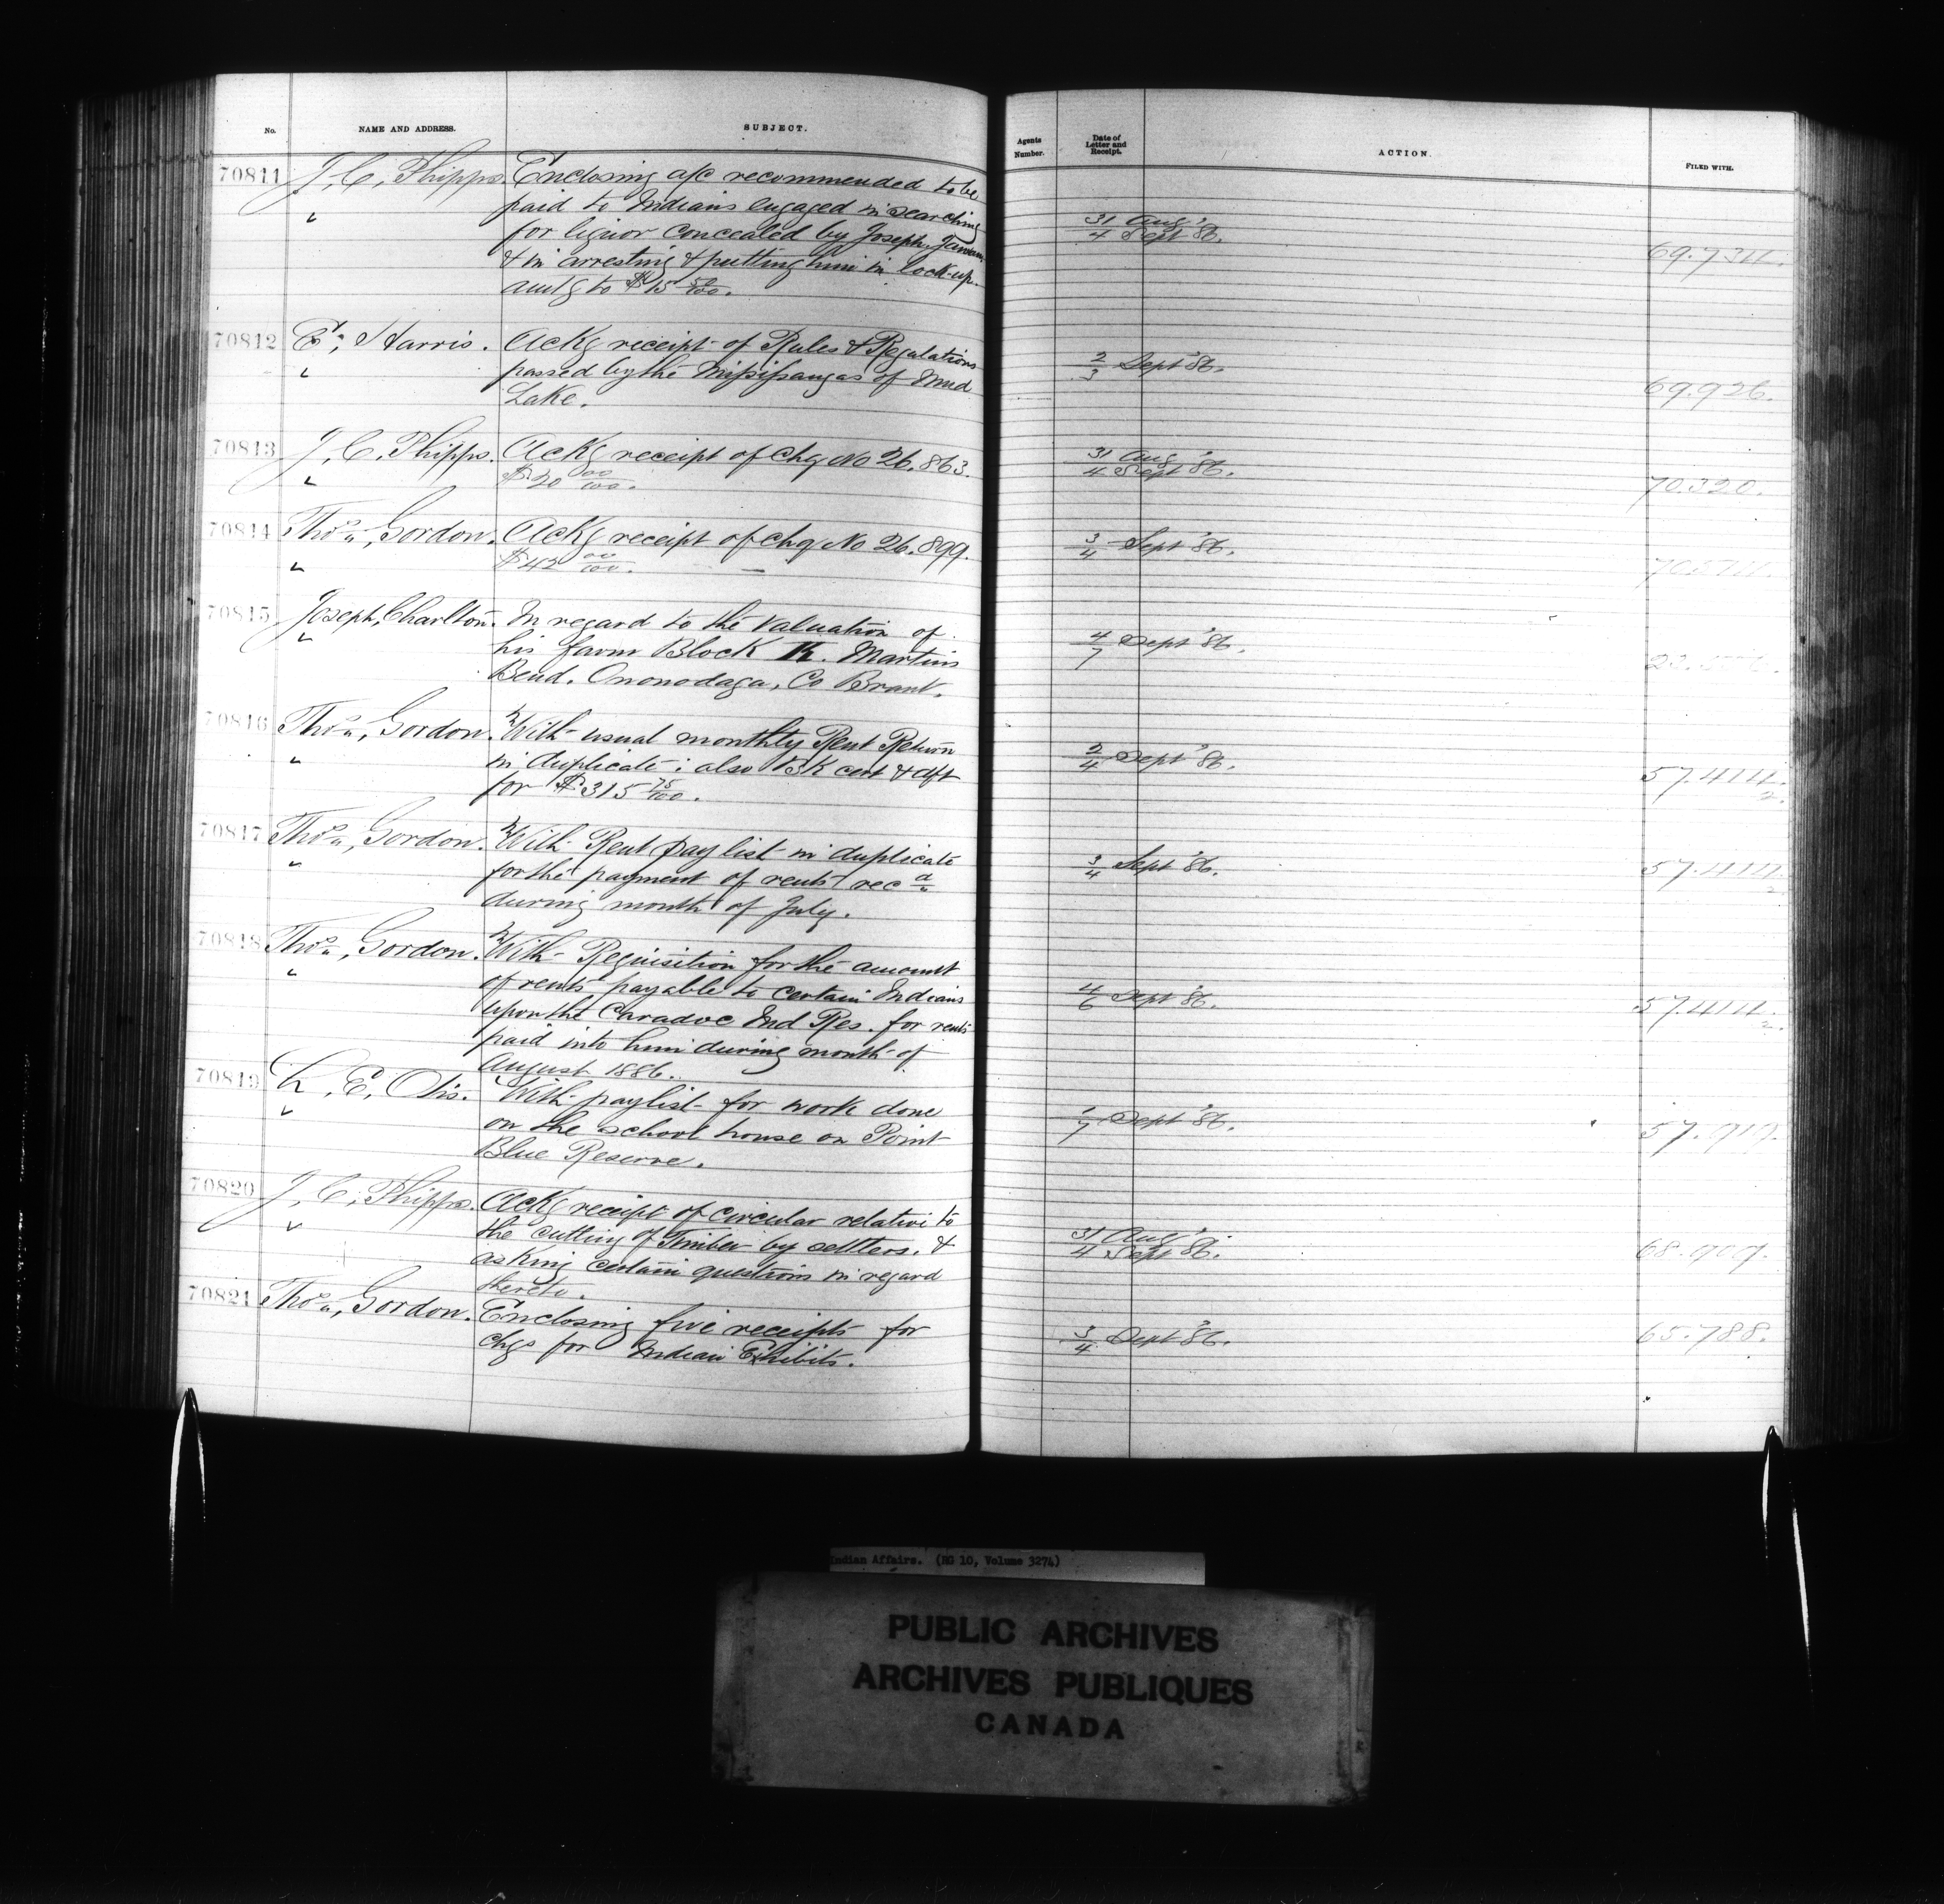 No. NAME AND ADDRESS. SUBJECT.
70811 J. C. Phipps. Enclosing a/c recommended to be
paid to Indians engaged in searching
for liquor concealed by Joseph
& in arresting & putting him in lock-up.
amtg to $15 50/100.
70812 E. Harris. Ackg receipt of Rules & Regulations
passed by the Missisaugas of Mud
Lake.
70813 J. C. Phipps. Ackg receipt of chq No 26.863.
$20 00/100.
70814 Thos. Gordon. Ackg receipt of chq No 26.899.
$42 00/100.
70815 Joseph Charlton. In regard to the valuation of
his farm Block K. Martins
Bend. Ononodaga, Co Brant.
70816 Thos. Gordon. With usual monthly Rent Return
in duplicate: also Bk cert & dft
for $315 75/100.
70817 Thos. Gordon. With Rent pay list in duplicate
for the payment of rents recd
during month of July.
70818 Thos. Gordon. With Requisition for the amount
of rents payable to certain Indians
upon the Caradoc Ind Res. for rents
paid into him during month of
August 1886.
70819 L. E. Otis. With paylist for work done
on the school house on Point
Blue Reserve.
70820 J. C. Phipps. Ackg receipt of circular relative to
the cutting of Timber by settlers. &
asking certain questions in regard
thereto.
70821 Thos. Gordon. Enclosing five receipts for
chqs for Indian Exhibits.
Agents Number. Date of Letter and Receipt. ACTION. FILED WITH.
31 Aug '
4 Sept 86. 69.734.
2/3 Sept '86. 69.926.
31 Aug '
4 Sept 86. 70.320.
3/4 Sept '86.
4/7 Sept '86.
2/4 Sept '86. 57.414.
2.
3/4 Sept '86. 57.414.
2
4/6 Sept '86. 57.414.
2.
1/7 Sept '86. 57.919.
31 Aug '
4 Sept 86. 68.909.
3/4 Sept '86. 65.788.
Indian Affairs. (RG 10, Volume 3274)
PUBLIC ARCHIVES
ARCHIVES PUBLIQUES
CANADA